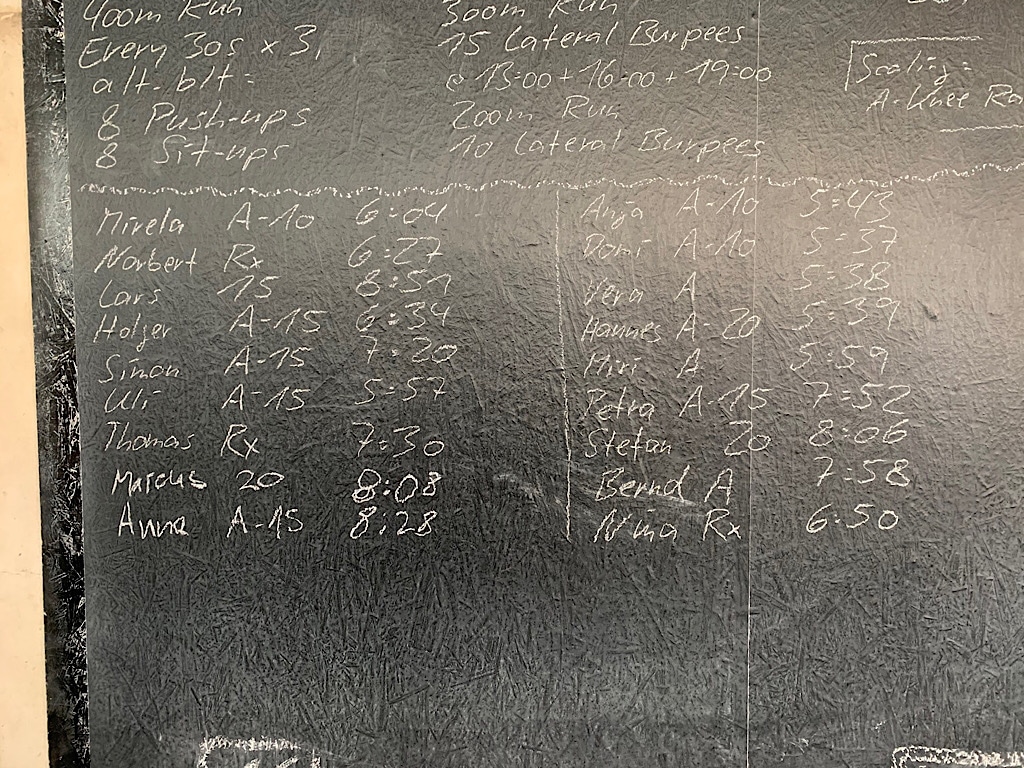 400m Run
Every 30s x 3,
alt. blt:
8 Push-ups
8 Sit-ups
300m Run
15 Lateral Burpees
@ 13:00 + 16:00 + 19:00
200m Run
10 Lateral Burpees
Scaling:
A-Knee Ra
Mirela A-10 6:04
Norbert Rx 6:27
Lars 15 8:51
Holger A-15 6:34
Simon A-15 7:20
Uli A-15 5:57
Thomas Rx 7:30
Marcus 20 8:08
Anna A-15 8:28
Anja A-10 5:43
Domi A-10 5:37
Vera A 5:38
Hannes A-20 5:39
Miri A 5:59
Petra A-15 7:52
Stefan 20 8:06
Bernd A 7:58
Nina Rx 6:50